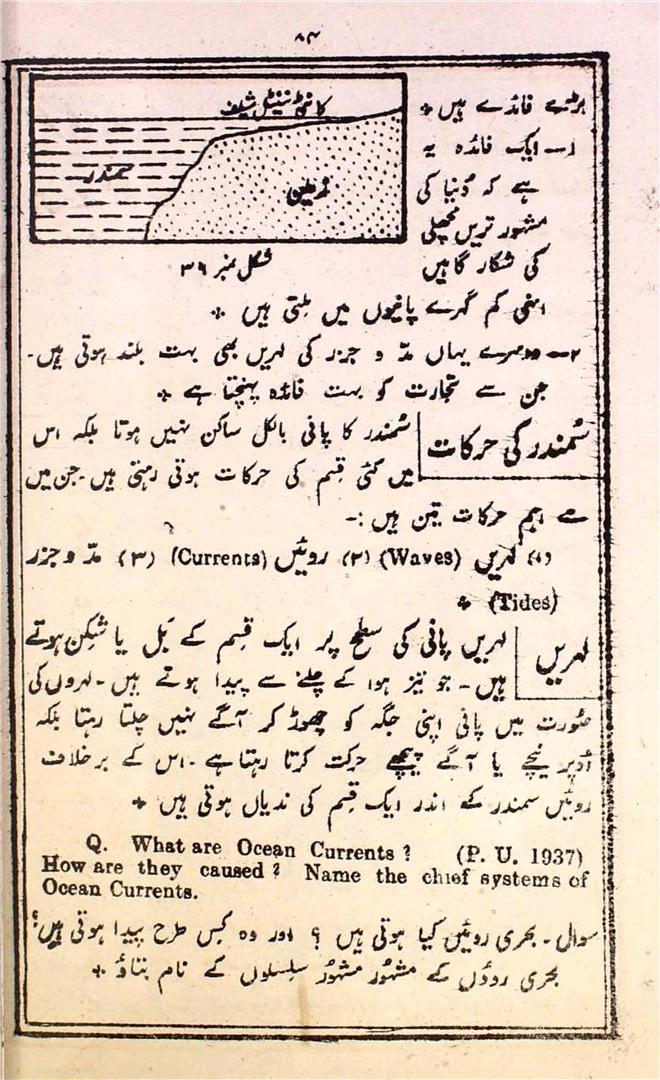 ۸۴
کانٹی نینٹل شیلف
سمندر
زمین
شکل نمبر ۳۶
بڑے فائدے ہیں *
۱— ایک فائدہ یہ
ہے کہ دُنیا کی
مشہور ترین مچھلی
کی شکار گاہیں
انہی کم گہرے پانیوں میں مِلتی ہیں *
۲— دوسرے یہاں مدّ و جزر کی لہریں بھی بہت بلند ہوتی ہیں۔
جن سے تجارت کو بہت فائدہ پہنچتا ہے *
سمندر کی حرکات
سمندر کا پانی بالکل ساکن نہیں ہوتا بلکہ اس
میں کئی قِسم کی حرکات ہوتی رہتی ہیں۔ جن میں
سے اہم حرکات تین ہیں :—
(۱) لہریں (Waves) (۲) روئیں (Currents) (۳) مدّ و جزر
(Tides) *
لہریں
لہریں پانی کی سطح پر ایک قسم کے بَل یا شِکن ہوتے
ہیں۔ جو تیز ہوا کے چلنے سے پیدا ہوتے ہیں۔ لہروں کی
صُورت میں پانی اپنی جگہ کو چھوڑ کر آگے نہیں چلتا رہتا بلکہ
اُوپر نیچے یا آگے پیچھے حرکت کرتا رہتا ہے۔ اس کے برخلاف
روئیں سمندر کے اندر ایک قِسم کی ندیاں ہوتی ہیں *
Q. What are Ocean Currents ? (P. U. 1937)
How are they caused ? Name the chief systems of
Ocean Currents.
سوال۔ بحری روئیں کیا ہوتی ہیں ؟ اور وہ کِس طرح پیدا ہوتی ہیں؟
بحری روؤں کے مشہُور مشہُور سِلسِلوں کے نام بتاؤ *